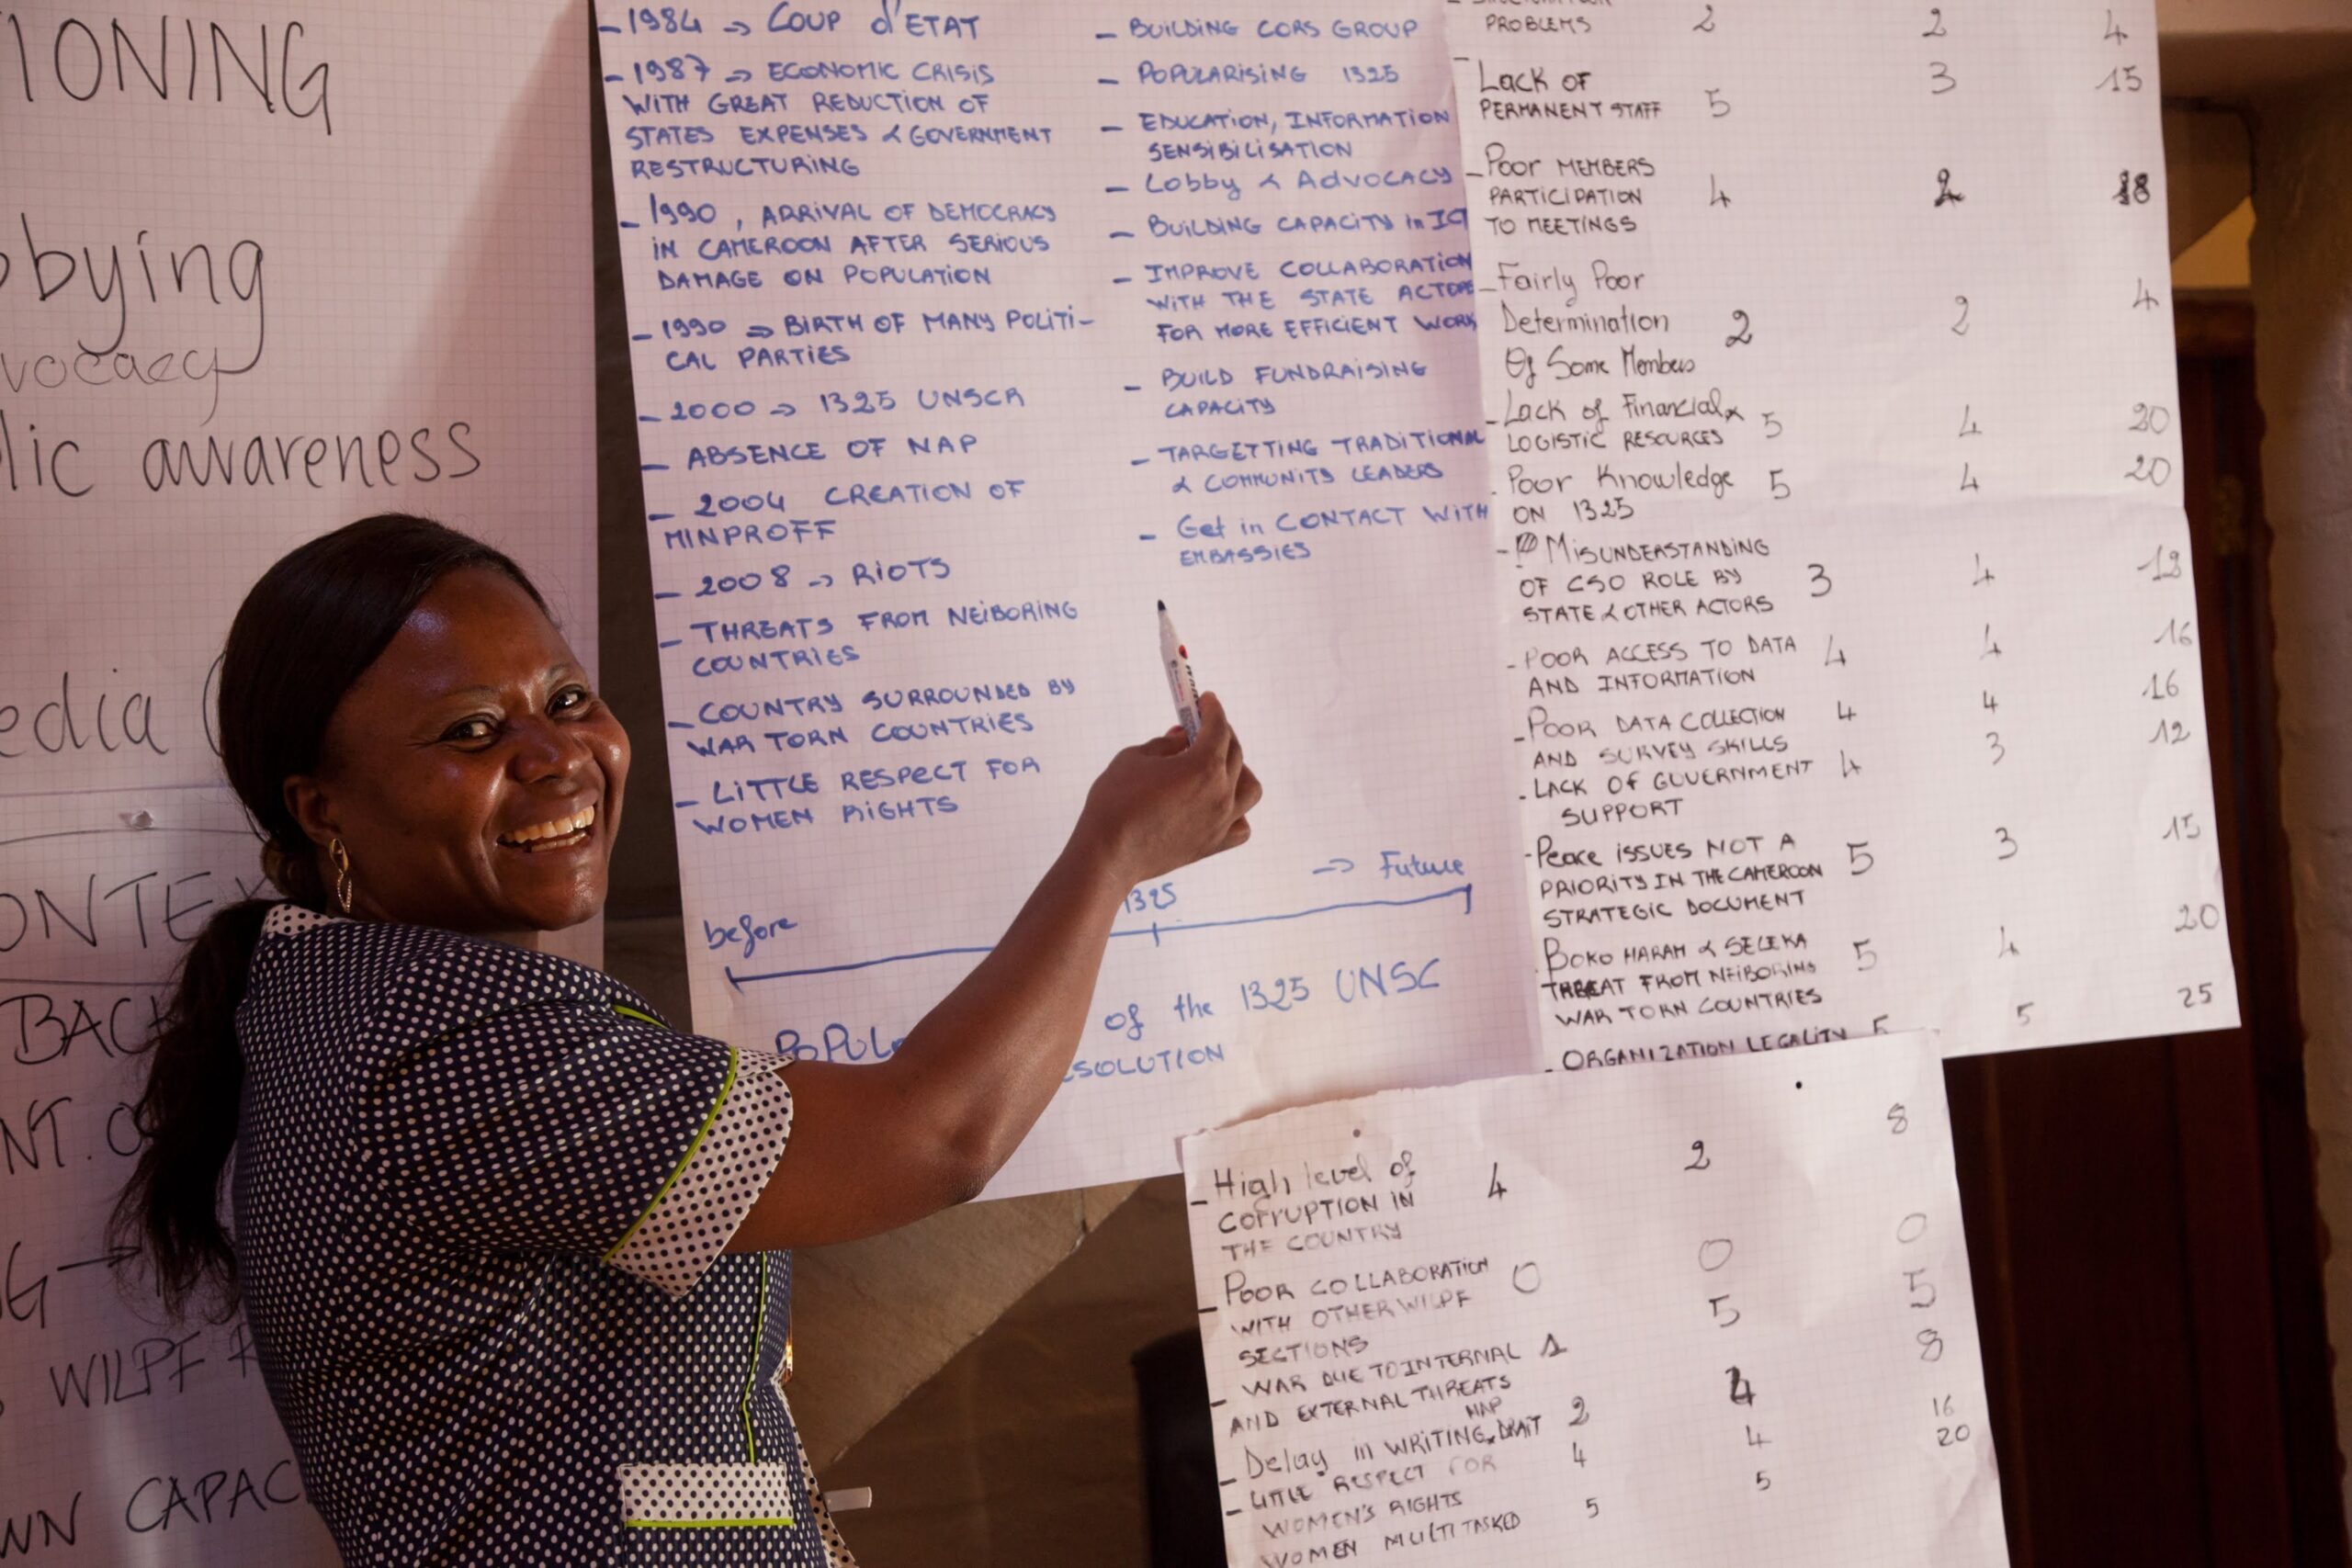 IONING
bbying
vocacy
lic awareness
edia (
ONTEX
BACK
NT. O
G →
WILPF R
WN CAPAC
– 1984 → COUP d'ETAT
– 1987 → ECONOMIC CRISIS
WITH GREAT REDUCTION OF
STATES EXPENSES & GOVERNMENT
RESTRUCTURING
– 1990, ARRIVAL OF DEMOCRACY
IN CAMEROON AFTER SERIOUS
DAMAGE ON POPULATION
– 1990 ⇒ BIRTH OF MANY POLITI-
CAL PARTIES
– 2000 → 1325 UNSCR
– ABSENCE OF NAP
– 2004 CREATION OF
MINPROFF
– 2008 → RIOTS
– THREATS FROM NEIBORING
COUNTRIES
– COUNTRY SURROUNDED BY
WAR TORN COUNTRIES
– LITTLE RESPECT FOR
WOMEN RIGHTS
– BUILDING CORS GROUP
– POPULARISING 1325
– EDUCATION, INFORMATION
SENSIBILISATION
– Lobby & ADVOCACY
– BUILDING CAPACITY in ICT
– IMPROVE COLLABORATION
WITH THE STATE ACTORS
FOR MORE EFFICIENT WORK
– BUILD FUNDRAISING
CAPACITY
– TARGETTING TRADITIONAL
& COMMUNITY LEADERS
– Get in CONTACT WITH
EMBASSIES
before 1325 → Future
POPULA of the 1325 UNSC
ESOLUTION
PROBLEMS 2 2 4
– Lack OF
PERMANENT STAFF 5 3 15
– Poor MEMBERS
PARTICIPATION 4
TO MEETINGS
– Fairly Poor
Determination 2 2 4
Of Some Members
– Lack of Financial &
LOGISTIC RESOURCES 5 4 20
– Poor Knowledge 5 4 20
ON 1325
– MISUNDERSTANDING
OF CSO ROLE BY 3 4 12
STATE & OTHER ACTORS
– POOR ACCESS TO DATA 4 4 16
AND INFORMATION
– POOR DATA COLLECTION 4 4 16
AND SURVEY SKILLS
– LACK OF GOVERNMENT 4 3 12
SUPPORT
– Peace ISSUES NOT A
PRIORITY IN THE CAMEROON 5 3 15
STRATEGIC DOCUMENT
– BOKO HARAM & SELEKA 5 4 20
THREAT FROM NEIBORING
WAR TORN COUNTRIES
– ORGANIZATION LEGALITY 5 5 25
– High level of 4 2 8
CORRUPTION IN
THE COUNTRY
– POOR COLLABORATION 0 0 0
WITH OTHER WILPF
SECTIONS
– WAR DUE TO INTERNAL 1 5 5
AND EXTERNAL THREATS
– Delay in WRITING NAP DRAIT 2 4 8
– LITTLE RESPECT FOR 4 4 16
WOMEN'S RIGHTS
WOMEN MULTITASKED 5 5 20